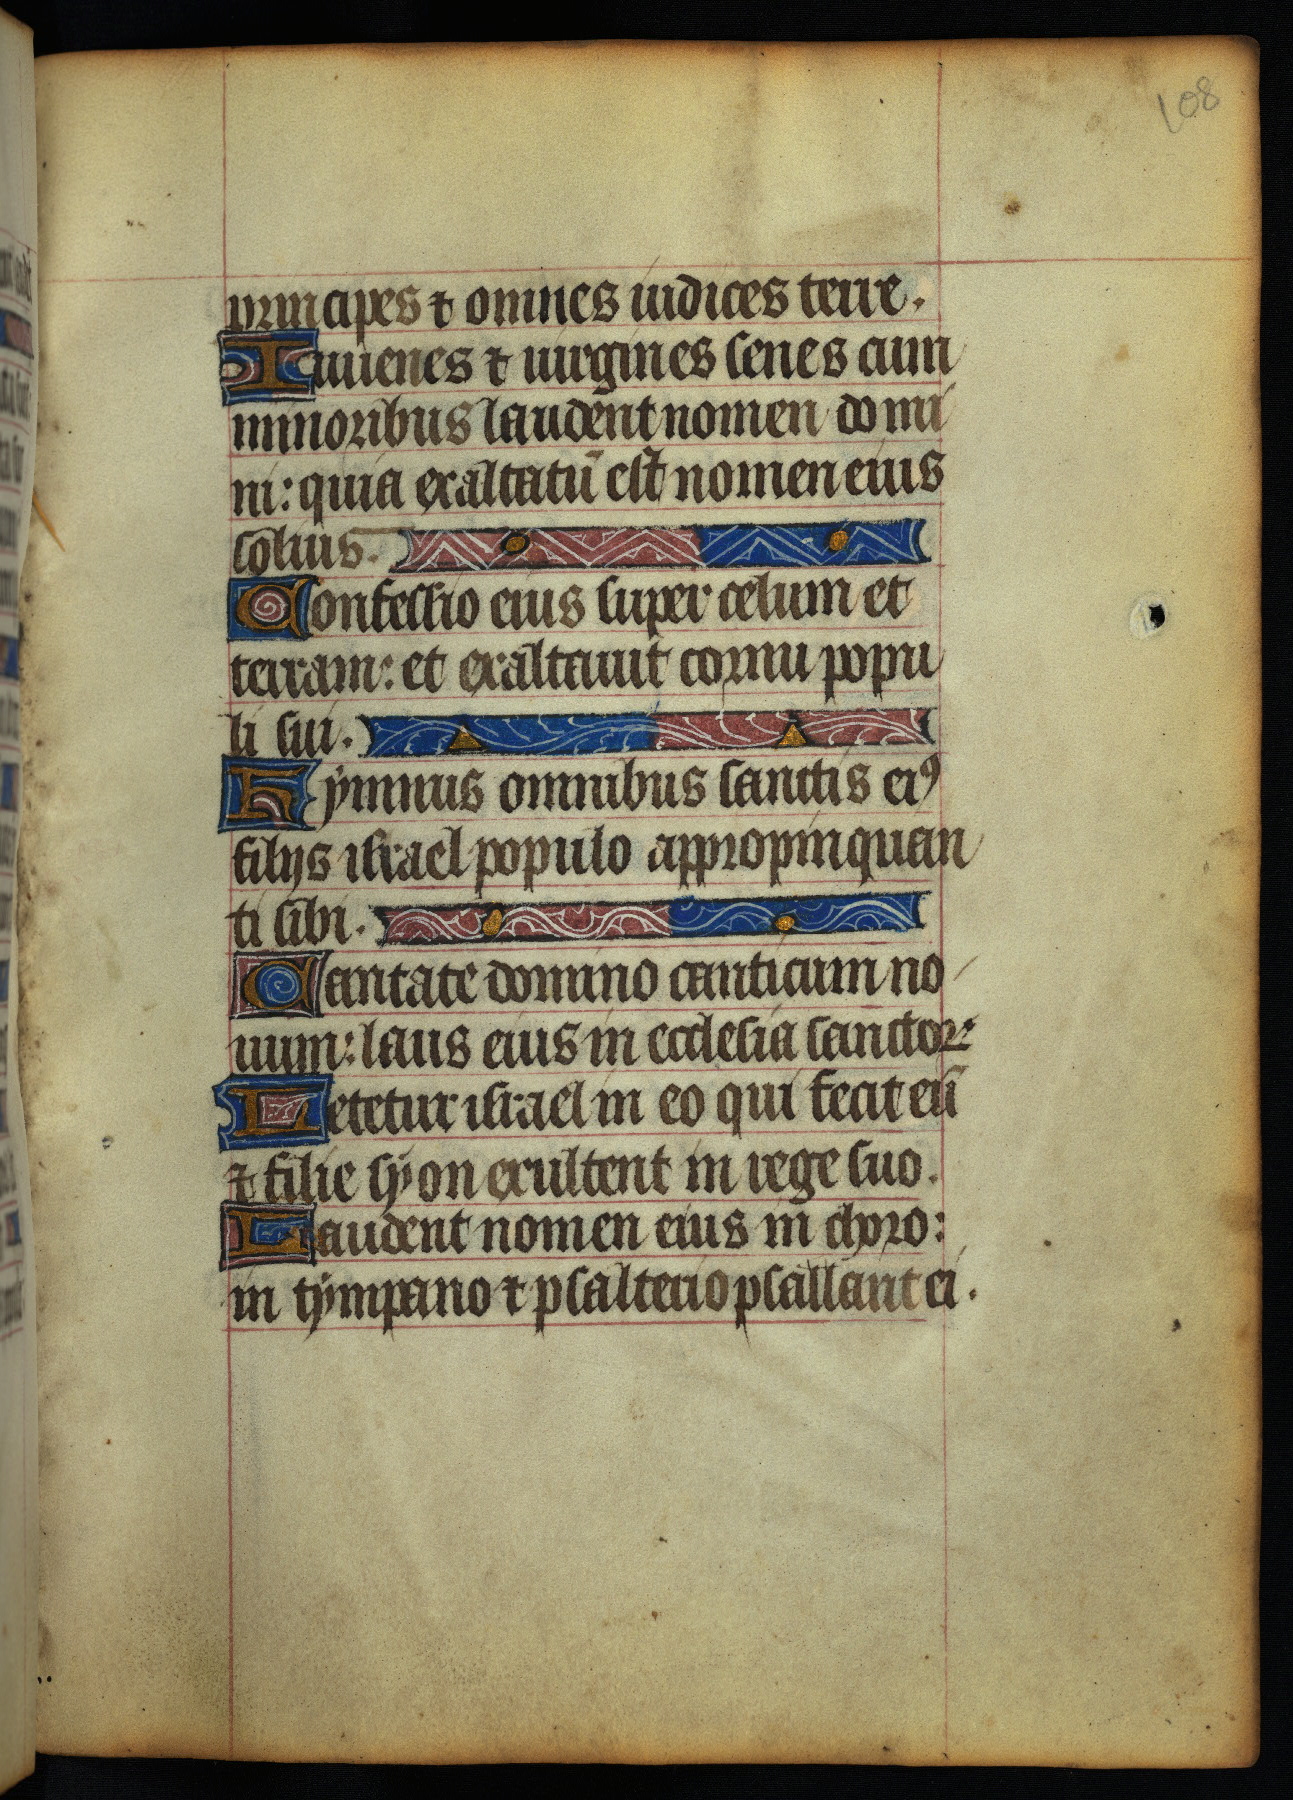 108
principes ⁊ omnes iudices terre.
Iuuenes ⁊ uirgines senes cum
minoribus laudent nomen domi
ni: quia exaltatū est nomen eius
solius.
Confessio eius super celum et
terram: et exaltauit cornu popu
li sui.
Hymnus omnibus sanctis eiꝰ
filijs israel populo appropinquan
ti sibi.
Cantate domino canticum no
uum: laus eius in ecclesia sanctoꝝ
Letetur israel in eo qui fecit eū
⁊ filie syon exultent in rege suo.
Laudent nomen eius in choro:
in tympano ⁊ psalterio psallant ei.